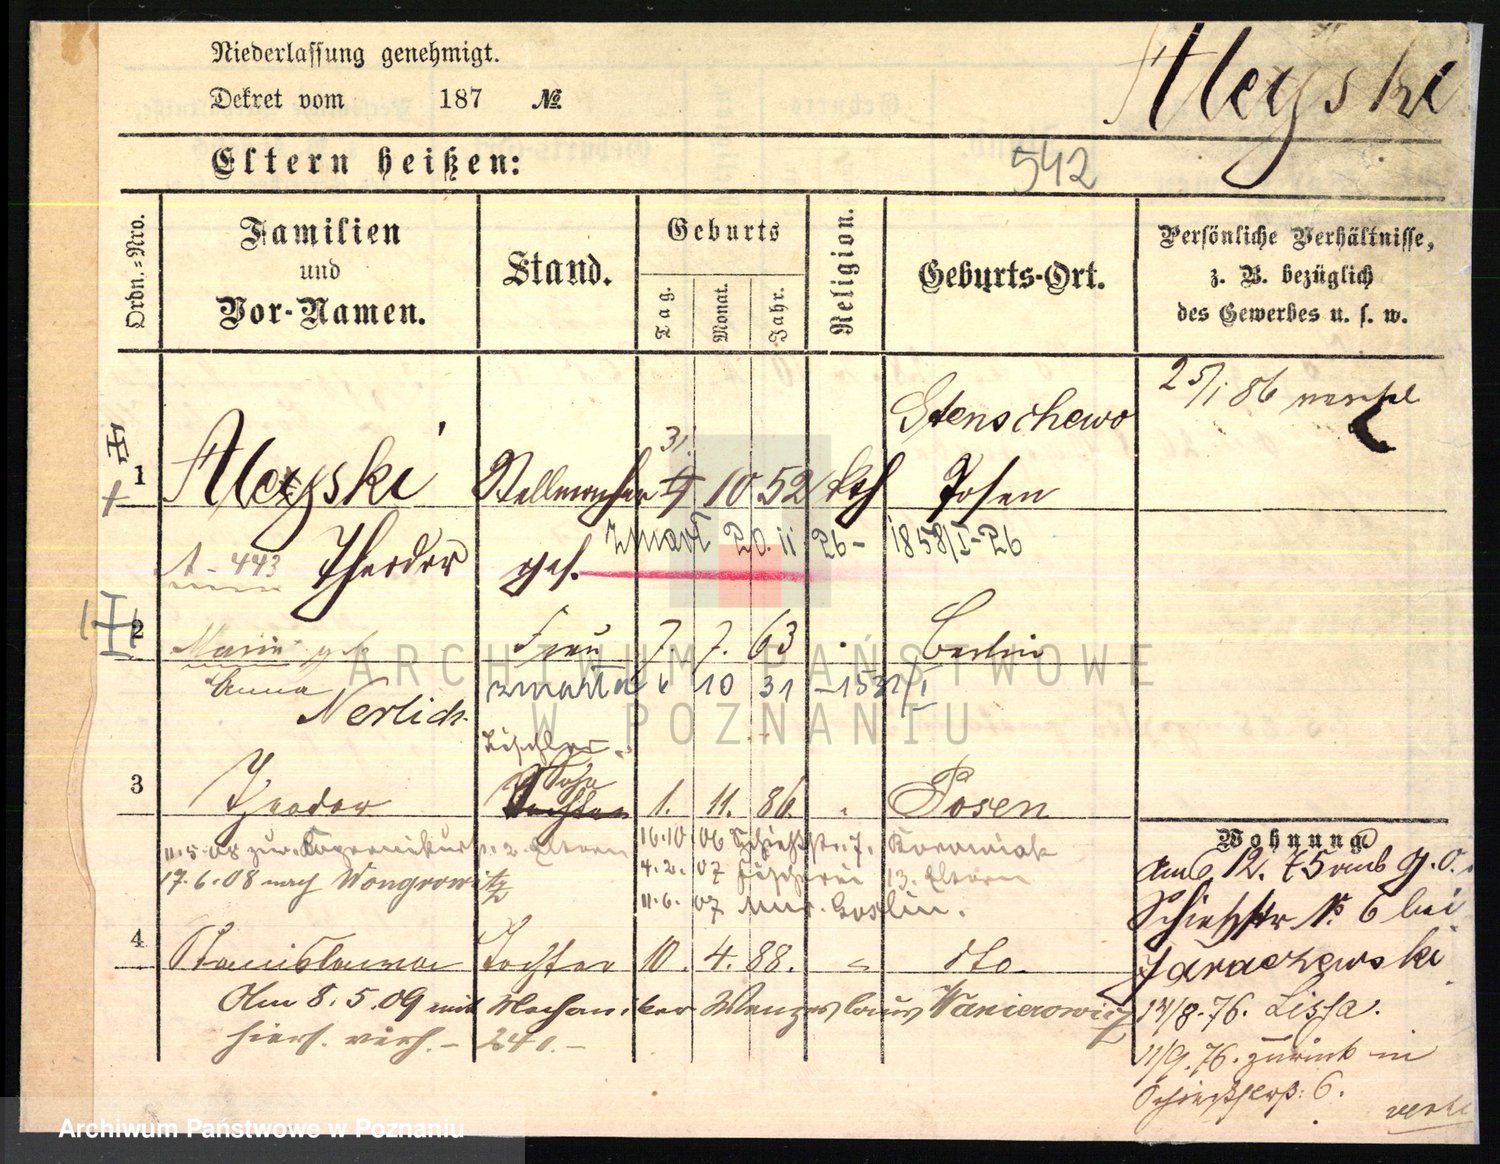 Niederlassung genehmigt.
Dekret vom 187 №
Aleyski
Eltern heißen:
542
Ordn.-Nro.
Familien
und
Vor-Namen.
Stand.
Geburts
Tag.
Monat.
Jahr.
Religion.
Geburts-Ort.
Persönliche Verhältnisse,
z. B. bezüglich
des Gewerbes u. s. w.
25/1 86
Stenschewo
31.
1 Aleyski Stellmacher 10 52 kth Posen
zmarł 20. 11 26 - 1858/I-26
A-443 Theodor
2 Marie Frau 7. 7. 63 Berlin
Anna zmarła 6 10 31
Nerlich
Tischler
Sohn
3 Theodor 1. 11. 86. " Posen
16.10 06 Schießstr. 7.
11.5.08 zur. Eltern
4.2.07 13. Eltern
17.6.08 nach Wongrowitz
11.6.07 Mur. Goslin.
4 Stanislawa Tochter 10. 4. 88. " dto.
Am 8.5.09 mit Mechaniker Wenzeslaus
hiers. verh. -
Wohnung
Am 6. 12. 75 g. o.
Schießstr № 6 bei
Jaraczewski
14/8.76. Lissa.
11/9.76. zurück in
Schießstr: 6.
ARCHIWUM PAŃSTWOWE
W POZNANIU
Archiwum Państwowe w Poznaniu